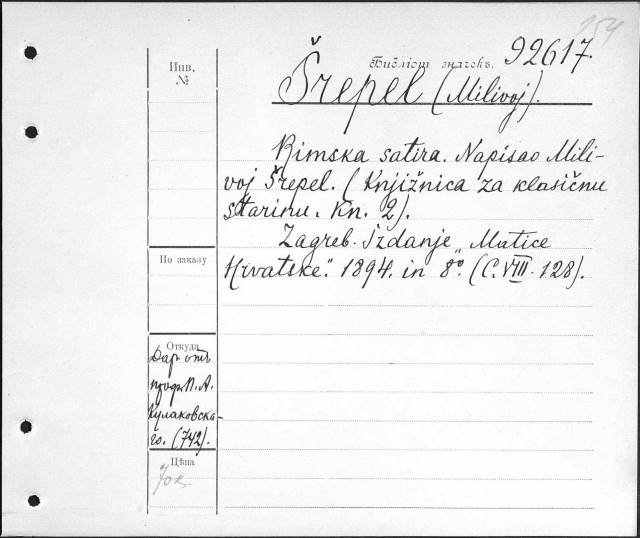 Инв.
№
Библіот. значекъ. 92617.
Šrepel (Milivoj).
Rimska satira. Napisao Mili-
voj Šrepel. (Knjižnica za klasičnu
starinu. Kn. 2).
Zagreb. Izdanje „Matice
Hrvatske“. 1894. in 8º. (C. VIII. 128).
По заказу
Откуда
Даръ отъ
проф. П. А.
Кулаковска-
го. (742).
Цѣна
70 к.